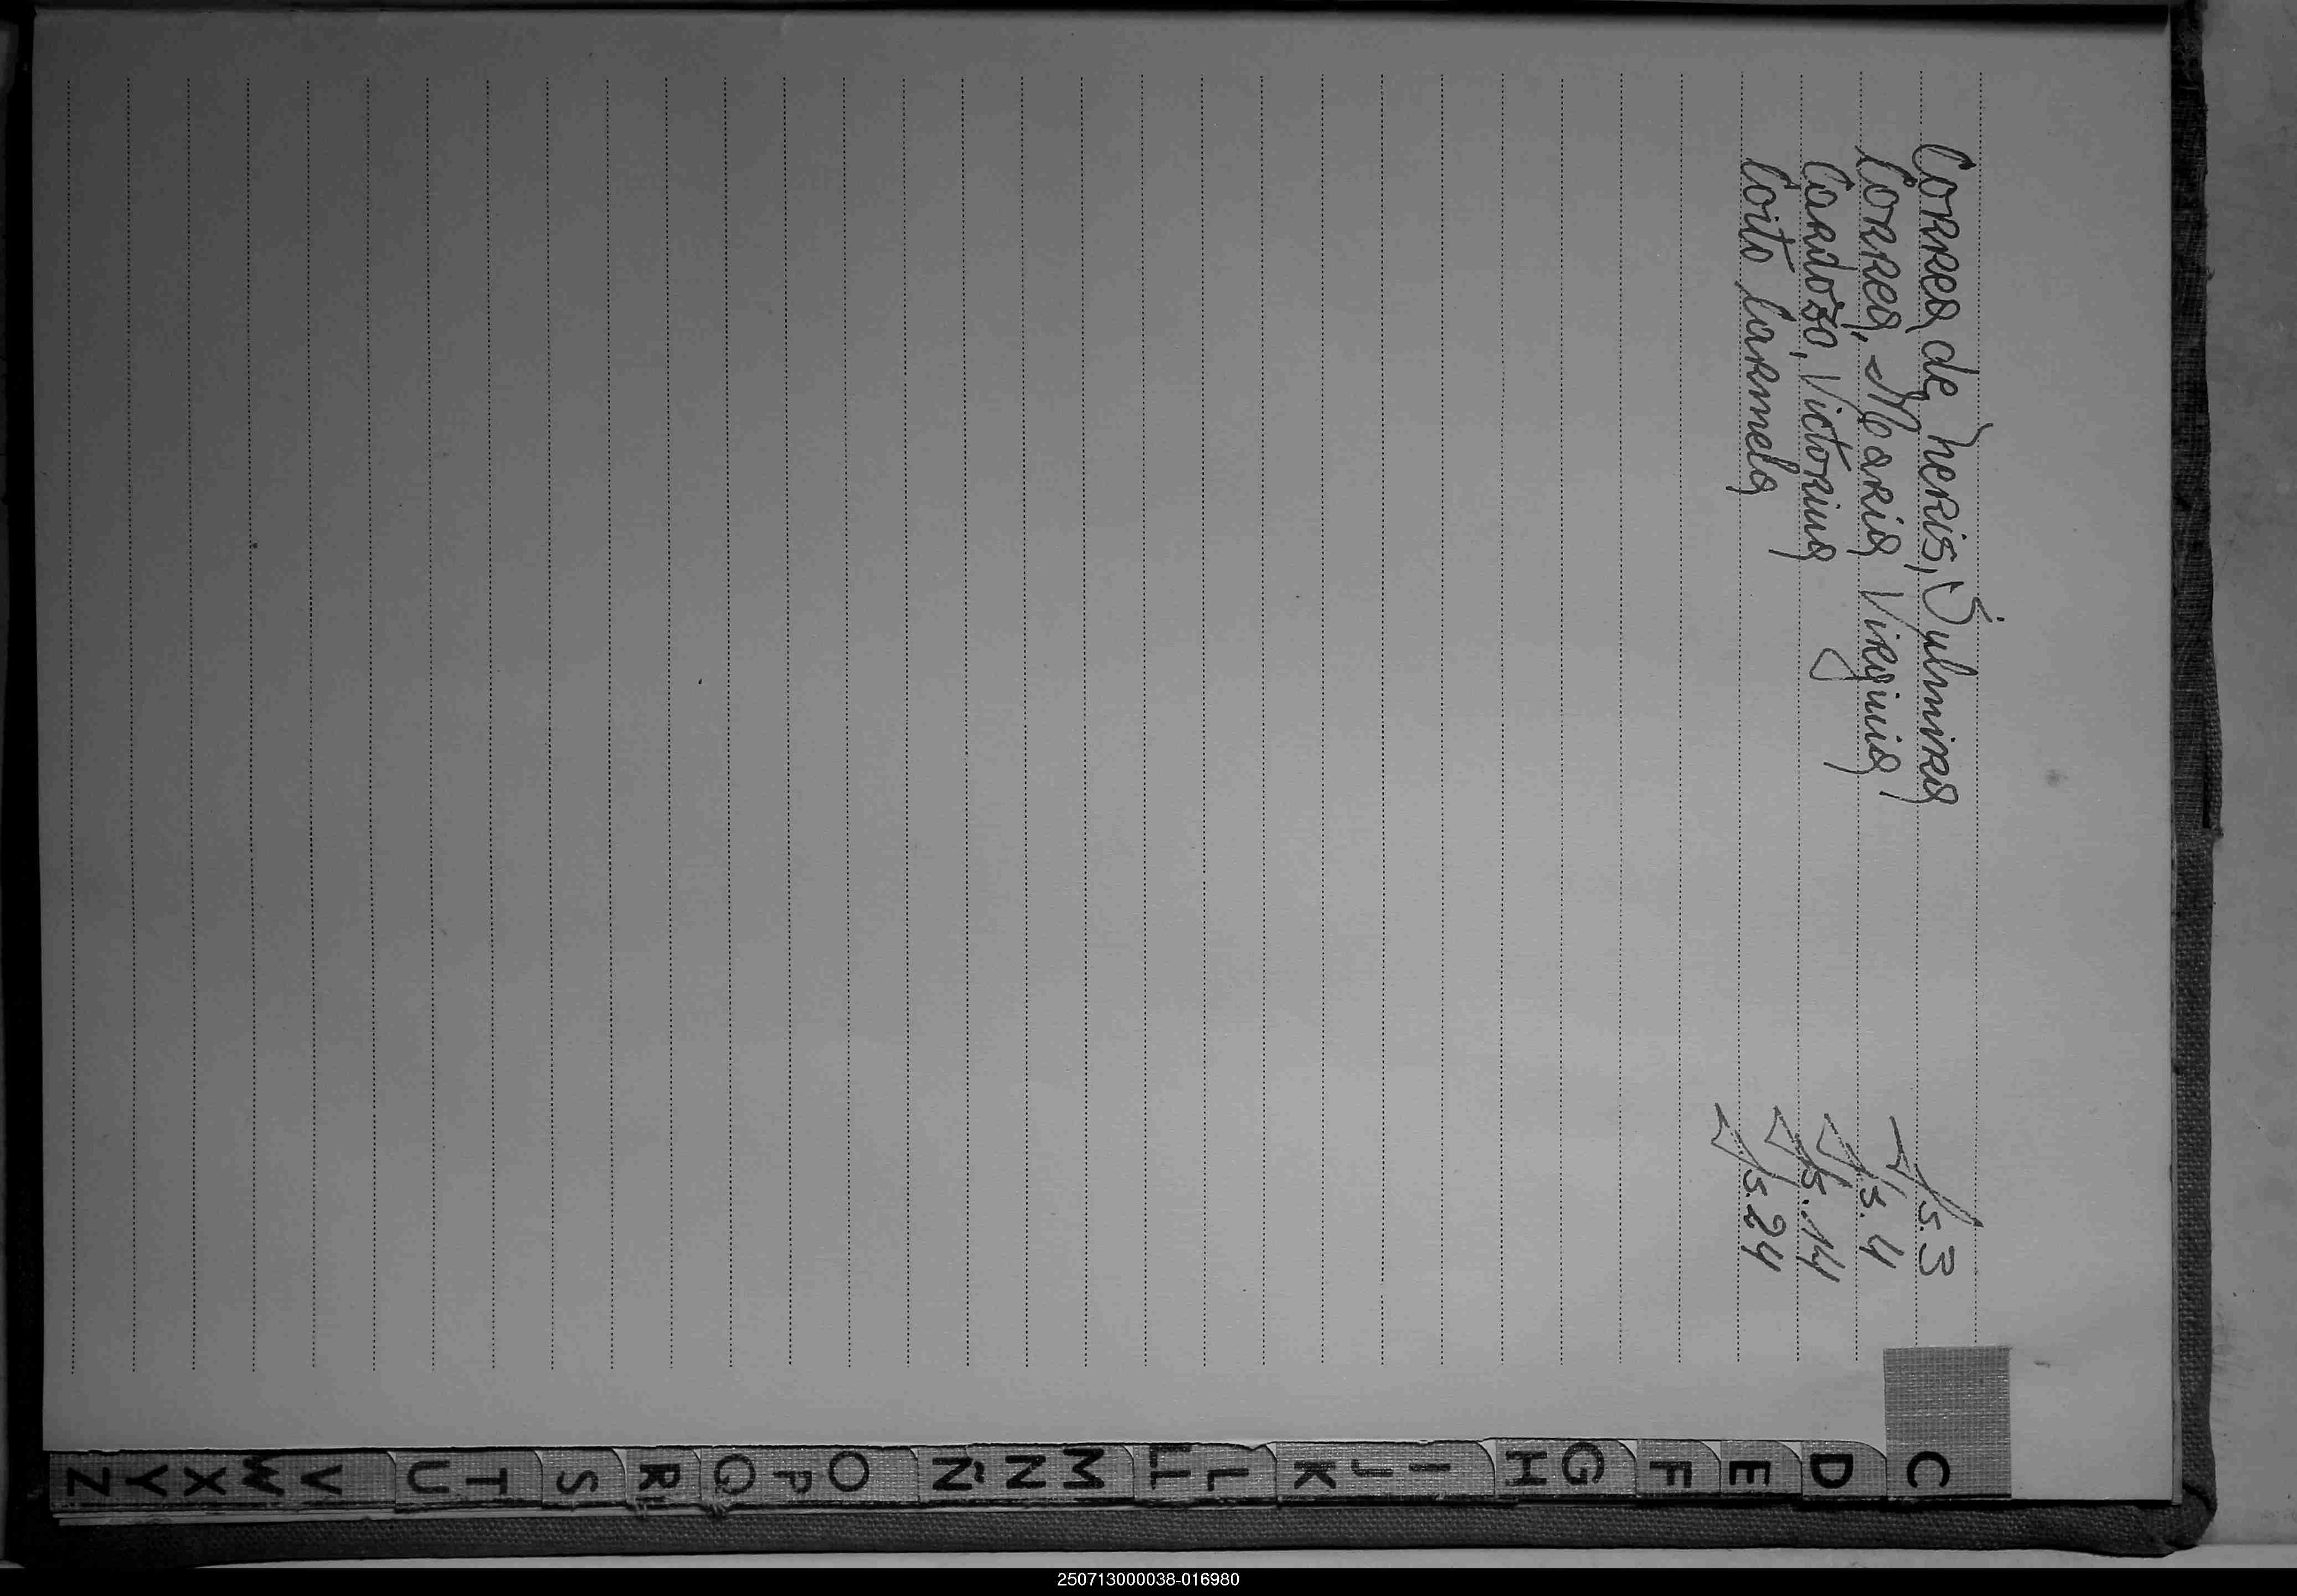 Correa de Neris, Sulmira fs. 3
Correa, Maria Virginia fs. 4
Cardozo, Victorina fs. 14
Coito Carmelo fs. 24
C
D
E
F
G
H
I
J
K
L
LL
M
N
Ñ
O
P
Q
R
S
T
U
V
W
X
Y
Z
250713000038-016980